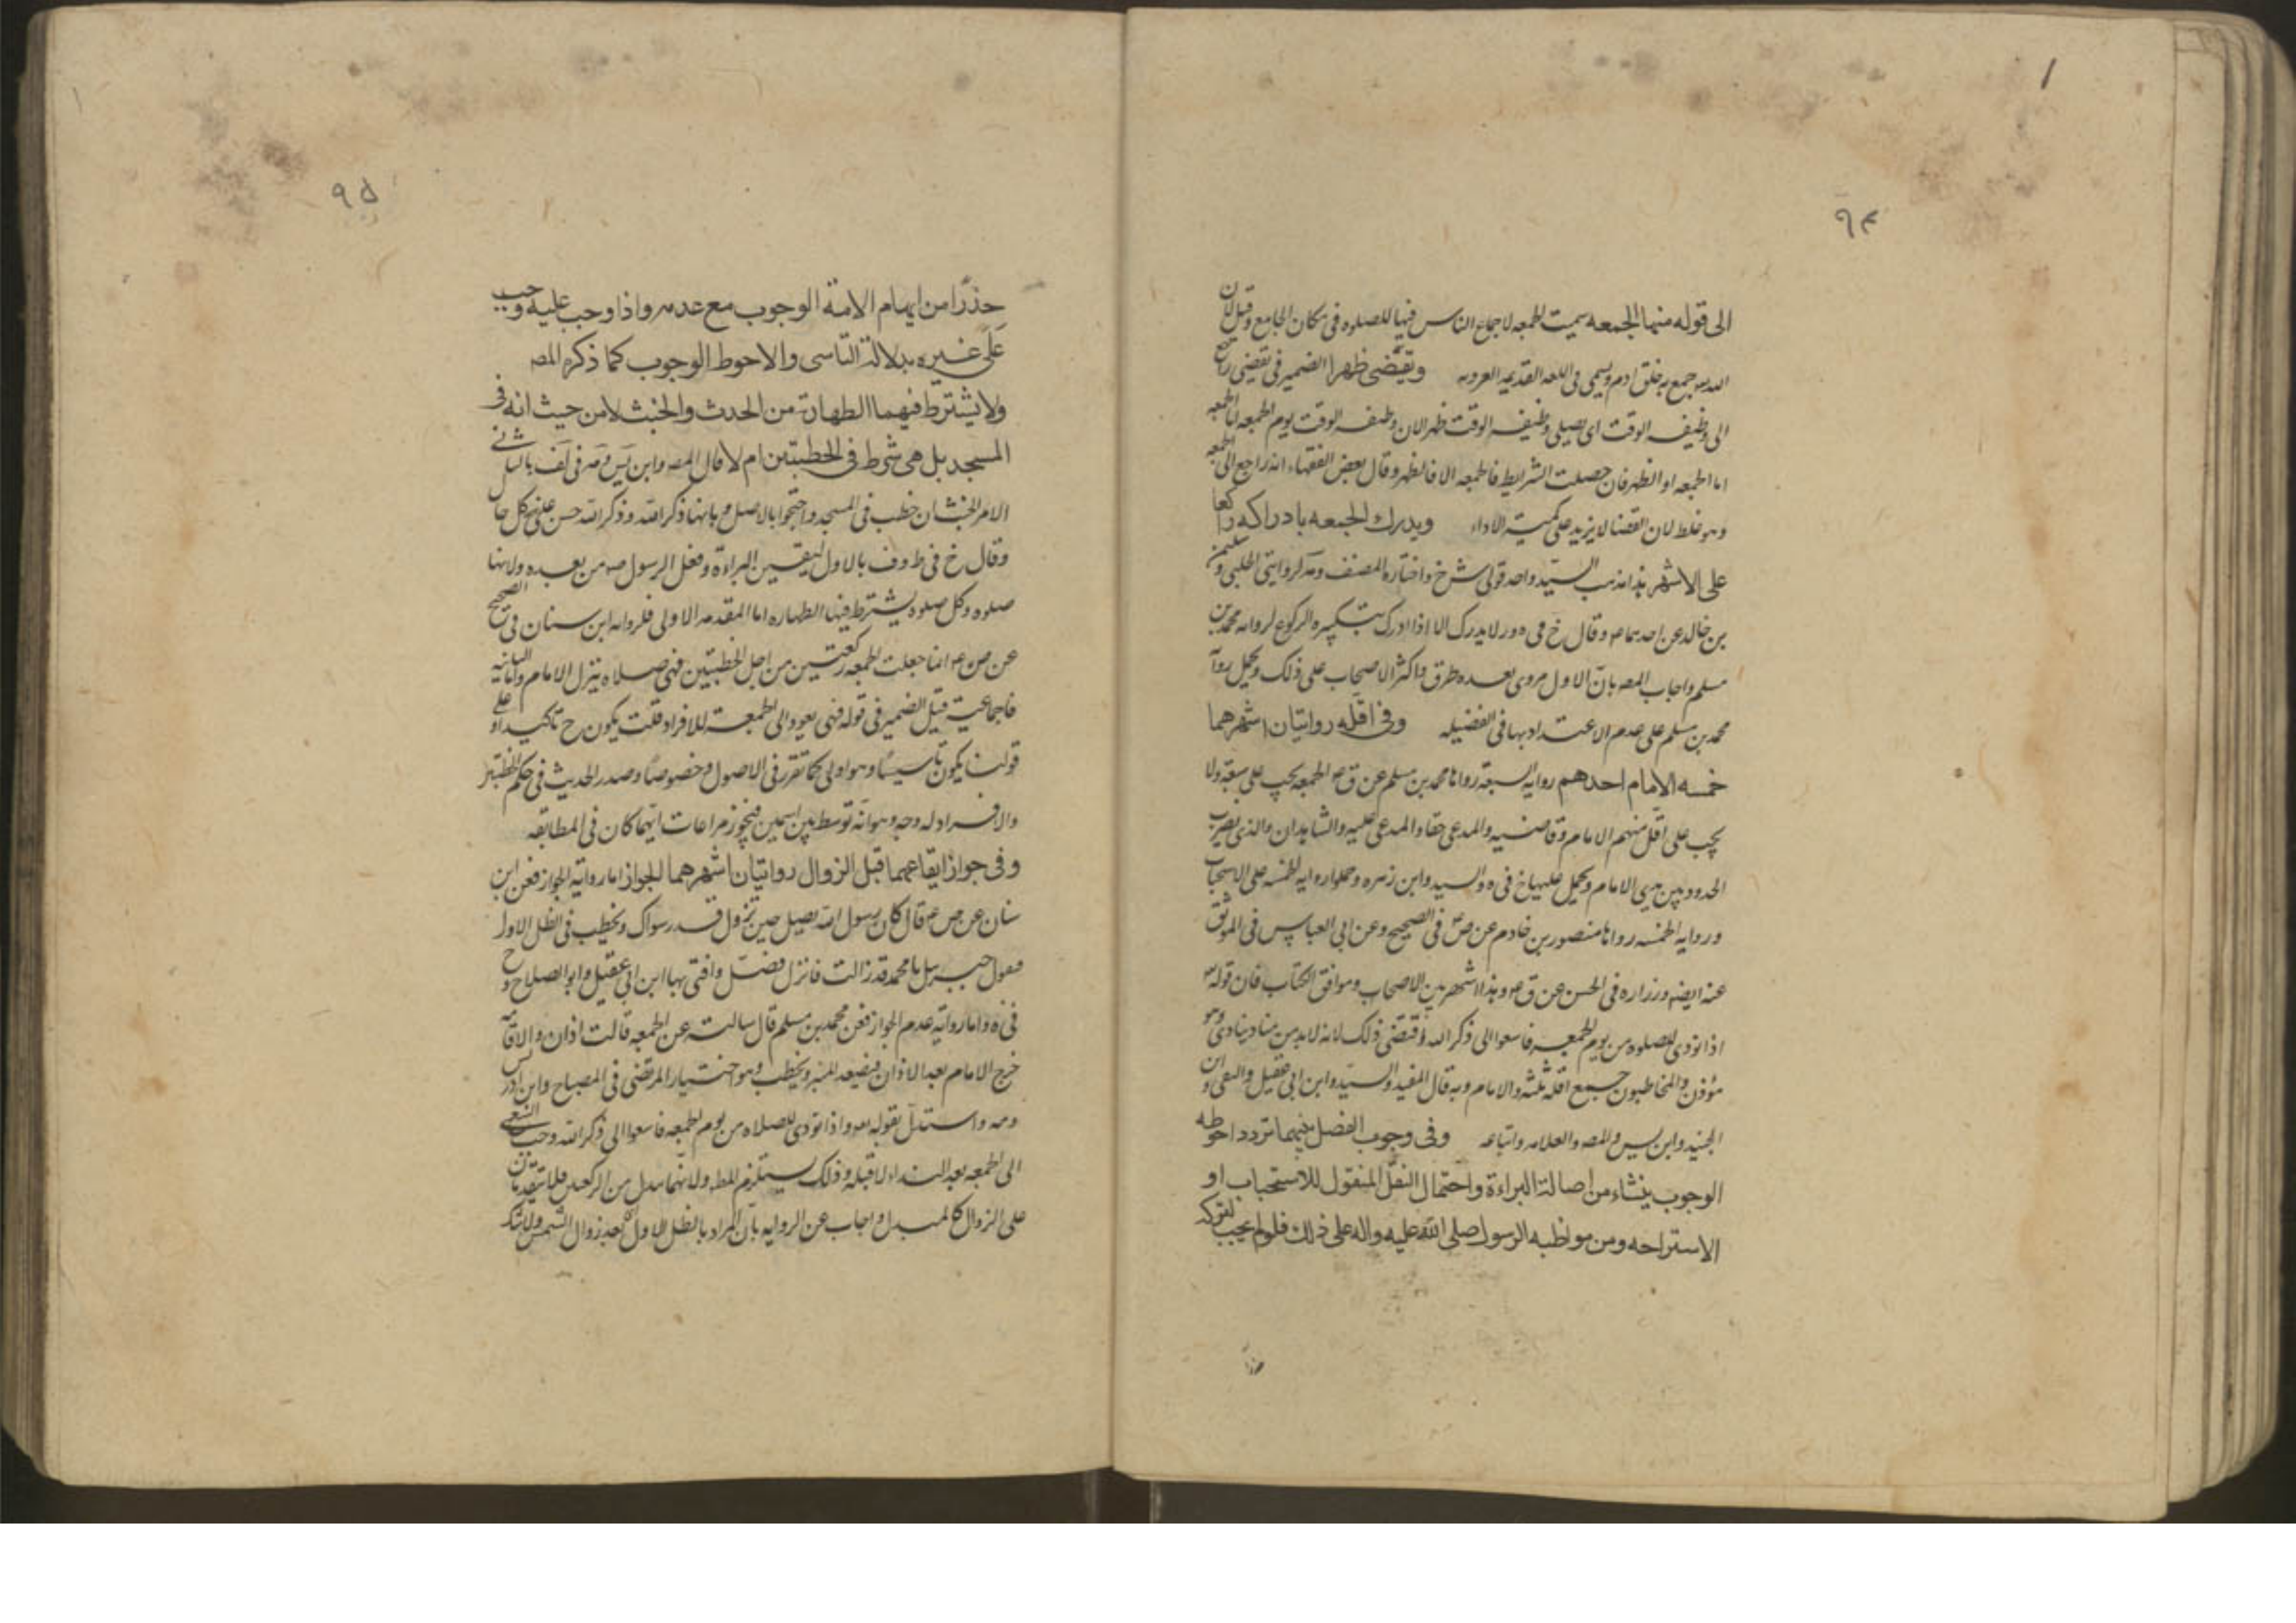 ٩٤
الى قوله منها الجمعه سميت الجمعه لاجماع الناس فيها للصلوه فى مكان الجامع وقيل لان
الله جمع به خلق ادم ويسمى فى اللغه القديمه العروبه وتقضى ظهرا الضمير فى تقضى راجع
الى وظيفه الوقت اى يصلى وظيفه الوقت ظهر الان وظيفه الوقت يوم الجمعه
اما الجمعه او الظهر فان حصلت الشرايط فالجمعه الا فالظهر وقال بعض الفقهاء انه راجع الى الجمعه
وهو غلط لان القضا لا يزيد على كمية الاداء ويدرك الجمعه بادراكه راكعا
على الاشهر هذا مذهب السيد واحد قولى ش خ واختاره المصنف لروايتى الحلبى وسليمن
بن خالد عن احدهما ع وقال خ فى لا يدرك الا اذا ادرك تكبيره الركوع لروايه محمد بن
مسلم واجاب المصه بان الاول مروى بعده طرق واكثر الاصحاب على ذلك ويحمل روآ
محمد بن مسلم على عدم الاعتداد بها فى الفضيله وفى اقله روايتان اشهرهما
خمسه الامام احدهم روايه السبعه رواها محمد بن مسلم عن ق ع الجمعه يجب على سبعة ولا
يجب على اقل منهم الامام وقاضيه والمدعى حقا والمدعى عليه والشاهدان والذى يضرب
الحدود بين يدى الامام ويحمل عليها خ فى ه والسيد وابن زهره وحملوا روايه الخمسه على الاستحباب
وروايه الخمسه رواها منصور بن خادم عن ص فى الصحيح وعن ابى العباس فى الموثق
عنه ايضه وزراره فى الحسن عن ق ع وهذا اشهر بين الاصحاب وموافق الكتاب فان قوله
اذا نودى للصلوه من يوم الجمعه فاسعوا الى ذكر الله اقتضى ذلك لانه لابد من مناد ينادى وهو
مؤذن والمخاطبون جمع اقله ثلثه والامام وبه قال المفيد والسيد وابن ابى عقيل والتقى وابن
الجنيد وابن يس والمصه والعلامه واتباعه وفى وجوب الفصل بينهما تردد احوطه
الوجوب ينشاء من اصالة البراءة واحتمال النفل المنقول للاستحباب او
الاستراحه ومن مواظبه الرسول صلى الله عليه واله على ذلك فلو لم يجب لتركه
حذرا
٩۵
حذرًا من ايهام الامة الوجوب مع عدمه واذا وجب عليه وجب
على غيره بدلالة التاسى والاحوط الوجوب كما ذكره المصه
ولا يشترط فيهما الطهارة من الحدث والخبث لا من حيث انه فى
المسجد بل هى شرط فى الخطبتين ام لا قال المصه وابن يس
خطب فى المسجد واحتجوا بالاصل وبانها ذكر الله وذكر الله حسن على كل حال
وقال خ فى ط وف بالاول ليقين البراءة وفعل الرسول ص من بعده ولانها
صلوه وكل صلوه يشترط فيها الطهاره اما المقدمه الاولى فلروايه ابن سنان فى الصحيح
عن ص ع انما جعلت الجمعه ركعتين من اجل الخطبتين فهى صلاه ينزل الامام والثانيه
فاجماعية قيل الضمير فى قوله فهى يعود الى الجمعة للافراد قلت يكون ح تاكيدا وعلى
قولنا يكون تأسيسًا وهو اولى كما تقرر فى الاصول وخصوصًا وصدر الحديث فى حكم الخطبتين
والافراد له وجه وهو انه توسط بين اسمين فيجوز مراعات ايهما كان فى المطابقه
وفى جواز ايقاعهما قبل الزوال روايتان اشهرهما الجواز اما رواية الجواز فعن ابن
سنان عن ص ع قال كان رسول الله يصلى حين تزول قدر سواك ويخطب فى الظل الاول
فيقول جبرئيل يا محمد قد زالت فانزل فصل وافتى بها ابن ابى عقيل وابو الصلاح و خ
فى ه واما رواية عدم الجواز فعن محمد بن مسلم قال سالته عن الجمعه قالت اذان والاقامه
خرج الامام بعد الاذان فيصعد المنبر ويخطب وهو اختيار المرتضى فى المصباح وابن ادريس
واستدل بقوله تعه واذا نودى للصلاه من يوم الجمعه فاسعوا الى ذكر الله وجب السعى
الى الجمعه بعد النداء لا قبله وذلك يستلزم المطه ولانهما بدل من الركعتين فلا يتقدمان
على الزوال كالمبدل واجاب عن الروايه بان المراد بالظل الاول بعد زوال الشمس ولا شك